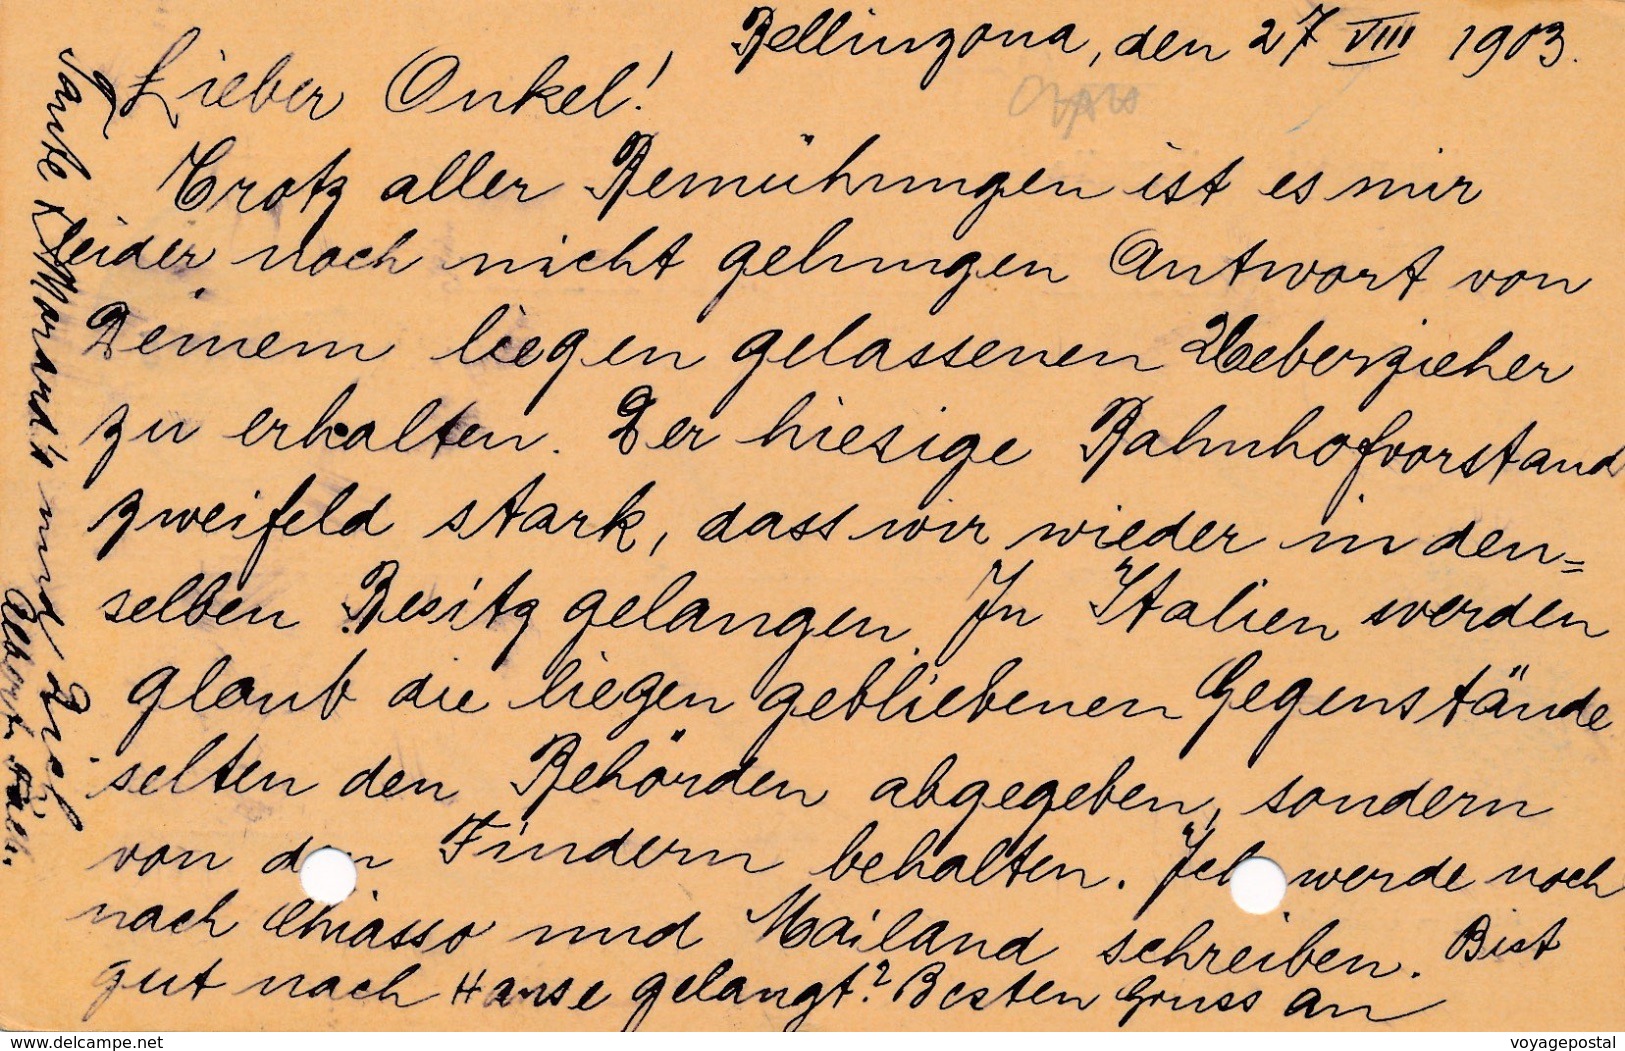 Bellinzona, den 27 VIII 1903.
Lieber Onkel!
Trotz aller Bemühungen ist es mir
leider noch nicht gelungen Antwort von
Deinem liegen gelassenen Ueberzieher
zu erhalten. Der hiesige Bahnhofvorstand
zweifeld stark, dass wir wieder in den=
selben Besitz gelangen. In Italien werden
glaub die liegen gebliebenen Gegenstände
selten den Behörden abgegeben, sondern
von den Findern behalten. Ich werde noch
nach Chiasso und Mailand schreiben. Bist
gut nach Hause gelangt? Besten Gruss an
Tante K. Morard's und Dich
voyagepostal
www.delcampe.net